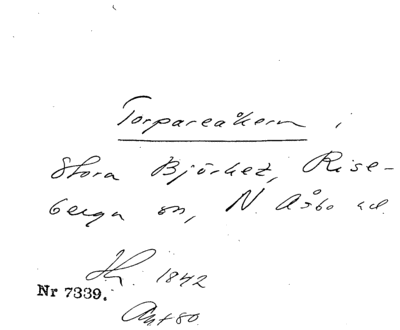 Torpareåkern i
Stora Björket, Rise-
berga sn, N. Åsbo hd.
1842
Nr 7339.